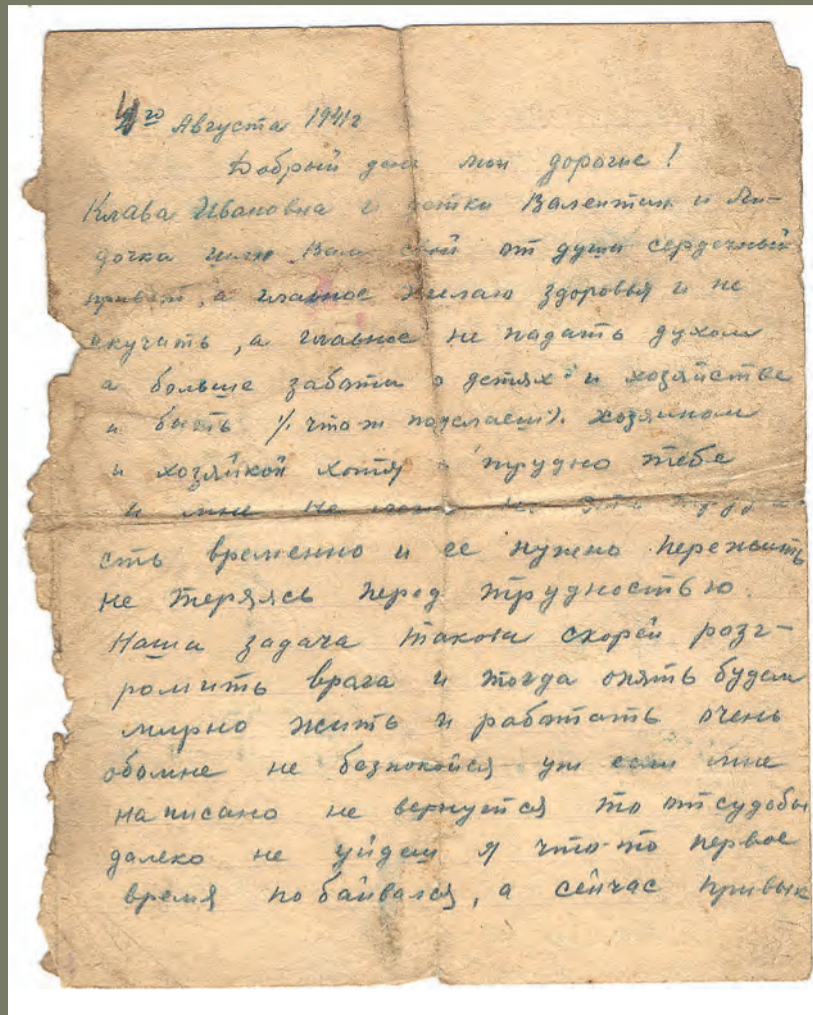 4го Августа 1941г
Добрый день мои дорогие!
Клава Ивановна и детки Валентин и Ли-
дочка шлю Вам свой от души сердечный
привет, а главное желаю здоровья и не
скучать, а главное не падать духом
а больше заботы о детях и хозяйстве
и быть /. что ж поделаеш). хозяином
и хозяйкой хотя и трудно тебе
и мне не
сть временно и ее нужно пережить
не теряясь перед трудностью.
Наша задача такова скорей розг-
ромить врага и тогда опять будем
мирно жить и работать очень
обомне не безпокойся уж если мне
написано не вернутся то от судобы
далеко не уйдеш я что-то первое
время побаивался, а сейчас привык